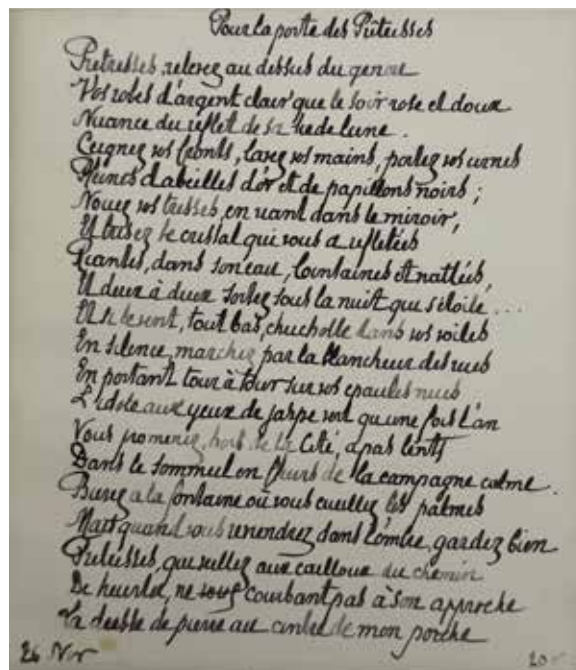 Pour la porte des Prêtresses
Prêtresses, relevez au dessus du genou
Vos robes d'argent clair que le soir rose et doux
Nuance du reflet de sa lune.
Ceignez vos fronts, lavez vos mains, portez vos urnes
Pleines d'abeilles d'or et de papillons noirs ;
Nouez vos tresses, en riant dans le miroir,
Et brisez le cristal qui vous a reflétées
Riantes, dans son eau, lointaines et nattées,
Et deux à deux sortez sous la nuit qui s'étoile...
Et si le vent, tout bas, chuchotte dans vos voiles
En silence, marchez par la blancheur des rues
En portant tour à tour sur vos épaules nues
L'idole aux yeux de jaspe vert qu'une fois l'an
Vous promenez, hors de la Cité, à pas lents
Dans le sommeil en fleurs de la campagne calme.
Buvez à la fontaine où vous cueillez les palmes
Mais quand vous reviendrez dans l'ombre, gardez bien
Prêtresses, qui veillez aux cailloux du chemin
De heurter, ne vous courbant pas à son approche
La double de pierre au cintre de mon porche
26 Nov
20